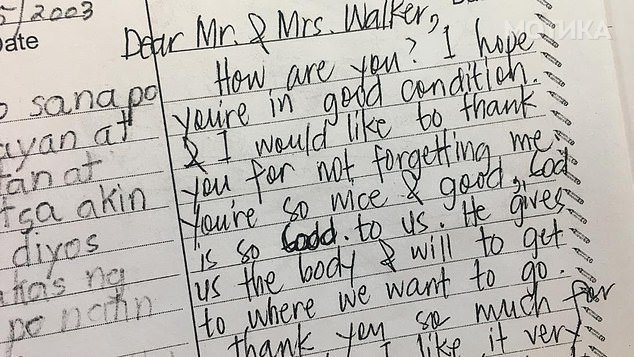 5/2003
Date
sana po
ayan at
tan at
akin
diyos
ng
po natin
Dear Mr. & Mrs. Walker,
How are you? I hope
you're in good condition.
& I would like to thank
you for not forgetting me,
You're so nice & good, God
is so Good. to us. He gives
us the body & will to get
to where we want to go.
thank you so much for
I like it very
МОТИКА